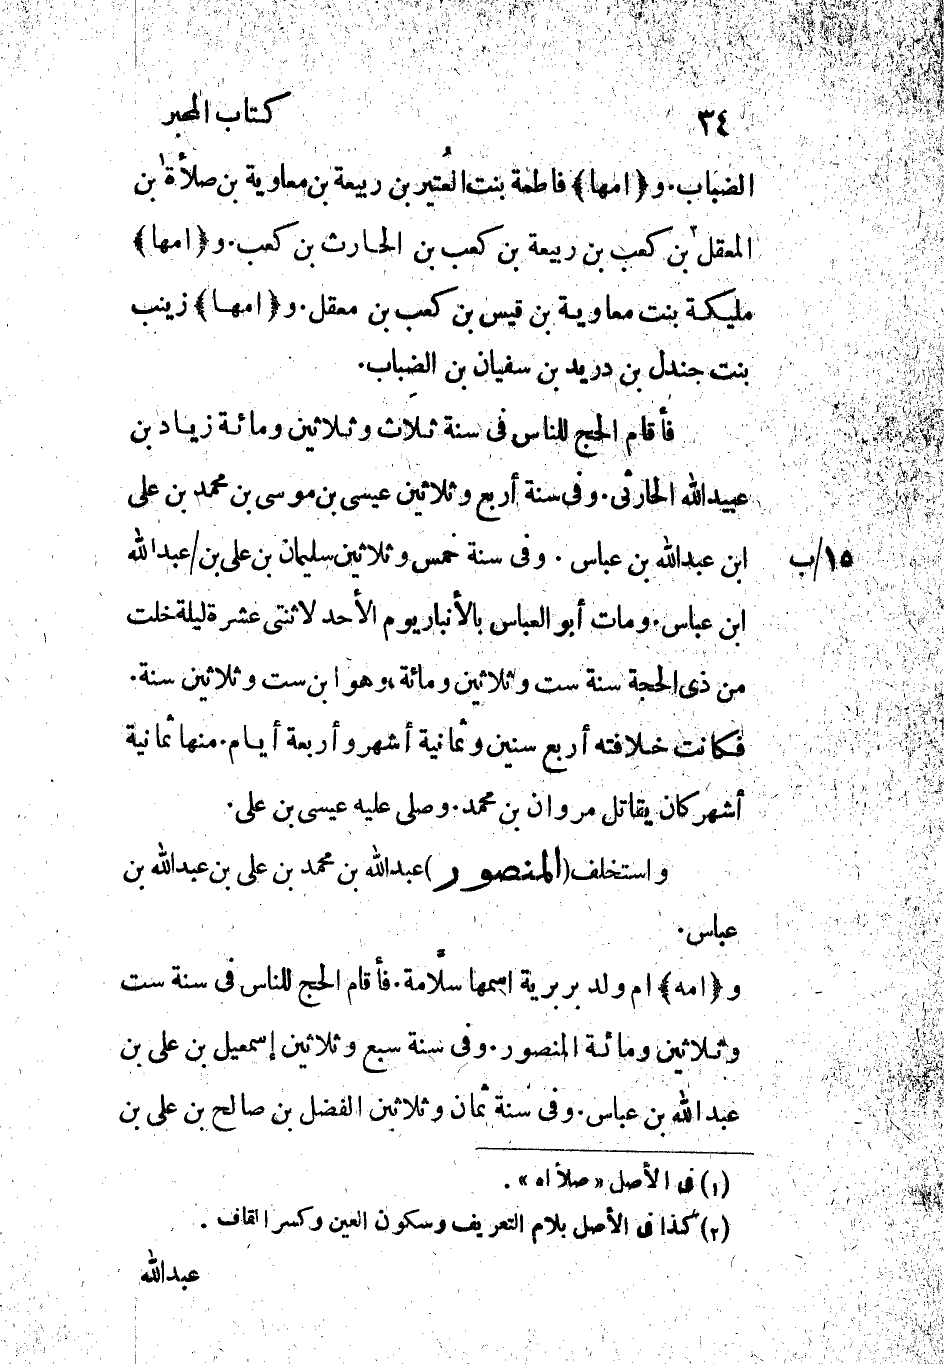 ٣٤ كتاب المحبر
الضباب. و﴿امها﴾ فاطمة بنت العُتير بن ربيعة بن معاوية بن صلأة١ بن
المعقل٢ بن كعب بن ربيعة بن كعب بن الحارث بن كعب. و﴿امها﴾
مليكة بنت معاوية بن قيس بن كعب بن معقل. و﴿امها﴾ زينب
بنت جندل بن دريد بن سفيان بن الضِباب.
فأقام الحج للناس فى سنة ثلاث وثلاثين ومائة زياد بن
عبيدالله الحارثى. وفى سنة أربع وثلاثين عيسى بن موسى بن محمد بن على
ابن عبدالله بن عباس . وفى سنة خمس وثلاثين سليمان بن على بن/عبدالله
١٥/ب
ابن عباس. ومات أبو العباس بالأنبار يوم الأحد لاثنتى عشرة ليلة خلت
من ذى الحجة سنة ست وثلاثين ومائة، وهو ابن ست وثلاثين سنة.
فكانت خلافته أربع سنين وثمانية أشهر وأربعة أيام. منها ثمانية
أشهر كان يقاتل مروان بن محمد. وصلى عليه عيسى بن على.
واستخلف (المنصور) عبدالله بن محمد بن على بن عبدالله بن
عباس.
و﴿امه﴾ ام ولد بربرية اسمها سلّامة. فأقام الحج للناس فى سنة ست
وثلاثين ومائة المنصور. وفى سنة سبع وثلاثين إسمعيل بن على بن
عبدالله بن عباس. وفى سنة ثمان وثلاثين الفضل بن صالح بن على بن
(١) فى الأصل «صلأاه» .
(٢) كذا فى الأصل بلام التعريف وسكون العين وكسر القاف .
عبدالله